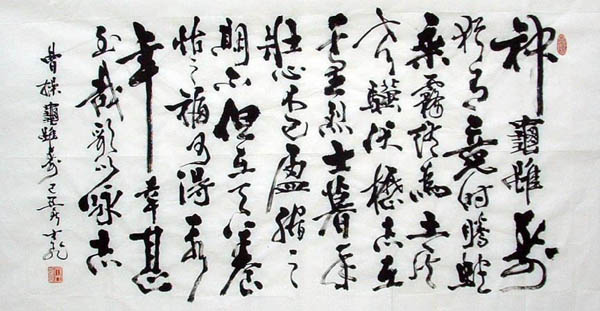 神龜雖壽
猶有竟时騰蛇
乘霧终為土灰
老驥伏櫪志在
千里烈士暮年
壯心不已盈縮之
期不但在天養
怡之福可得永
年幸甚
至哉歌以詠志
曹操龜雖壽己丑秋